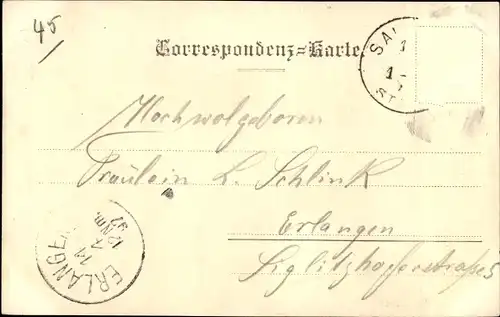 45
Correspondenz=Karte.
SA
1
1
Hochwolgeboren
Fräulein L. Schlink
Erlangen
Siglitzhoferstraße 5
ERLANGEN
14
12 Nm.
97